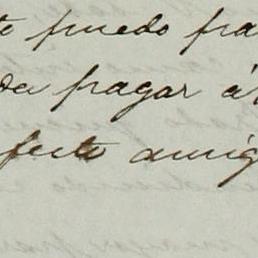 to puedo pa
da pagar á
fecto amig